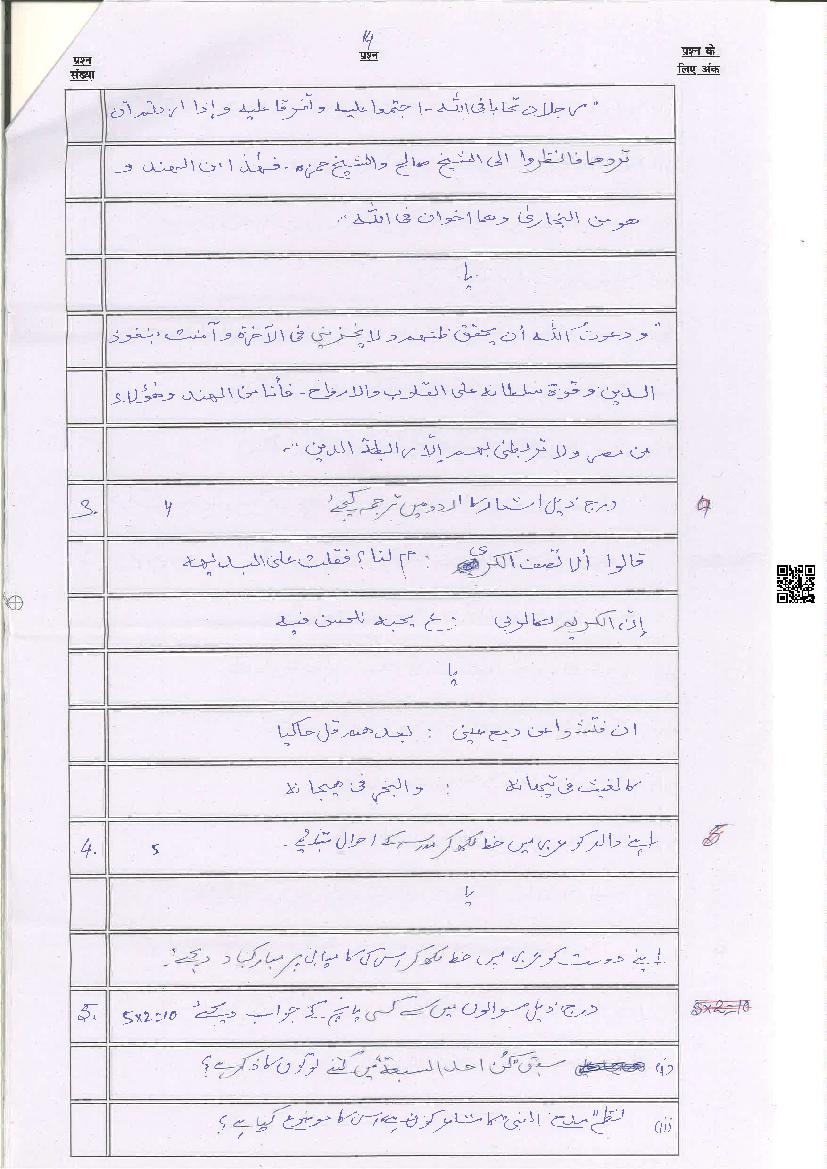 14
प्रश्न
संख्या
प्रश्न
प्रश्न के
लिए अंक
"رجلان تحابا فی اللہ - اجتمعا علیہ و تفرقا علیہ و إذا اردتم أن
تروهما فانظروا الی الشیخ صالح والشیخ حمزہ - فهذا ابن الهند و
هو من البخاری وهما اخوان فی اللہ"۔
یا
"و دعوتُ اللہ أن یحقق ظنهم ولا یخزینی فی الآخرة و آمنت بنفوذ
الدین و قوة سلطانه علی القلوب والارواح - فأنا من الهند وهؤلاء
من مصر ولا تربطنی بهم إلّا رابطة الدین"۔
3. درج ذیل اشعار کا اردو میں ترجمہ کیجئے 4
قالوا ألا تصف الکری : م لنا؟ فقلت علی البدیهه
إنّ الکریم لکالربی : ع یحبه للحسن فیه
یا
ان فتشوا عن دمع عینی : بعدهم قل حاکیا
کالغیث فی تهتانه : والبحر فی هیجانه
4. اپنے والد کو عربی میں خط لکھ کر مدرسہ کے احوال بتائیے۔ 5
5
یا
اپنے دوست کو عربی میں خط لکھ کر اس کی کامیابی پر مبارکباد دیجئے۔
5. درج ذیل سوالوں میں سے کسی پانچ کے جواب دیجئے 5x2=10
5x2=10
(i) سبق "کن احد السبعة" میں کتنے لوگوں کا ذکر ہے؟
(ii) نظم "مدح النبی" کا شاعر کون ہے، اس کا موضوع کیا ہے؟